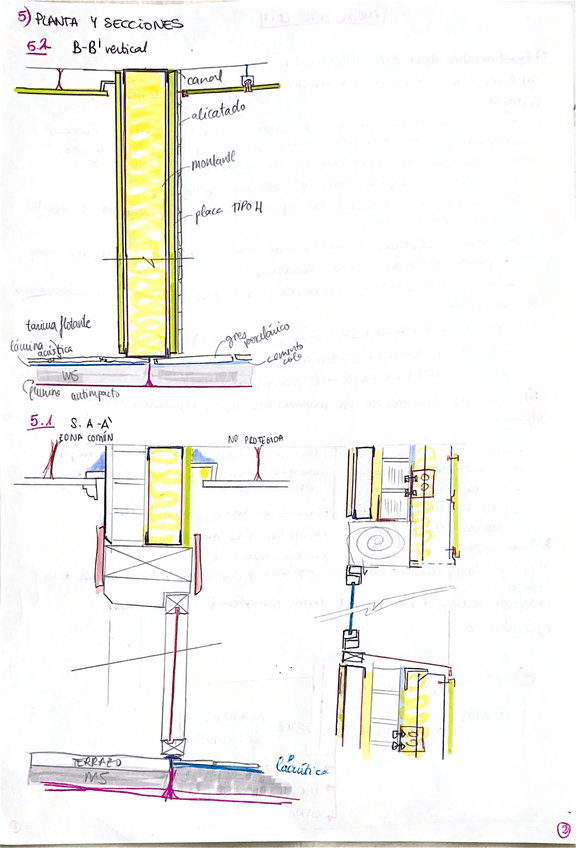 5) PLANTA Y SECCIONES
5.2 B-B' vertical
canal
alicatado
montante
placa TIPO H
tarima flotante
lámina acústica
gres porcelánico
cemento cola
M5
antiimpacto
5.1 S. A-A'
ZONA COMÚN
NO PROTEGIDA
TERRAZO
M5
l. acústica
2